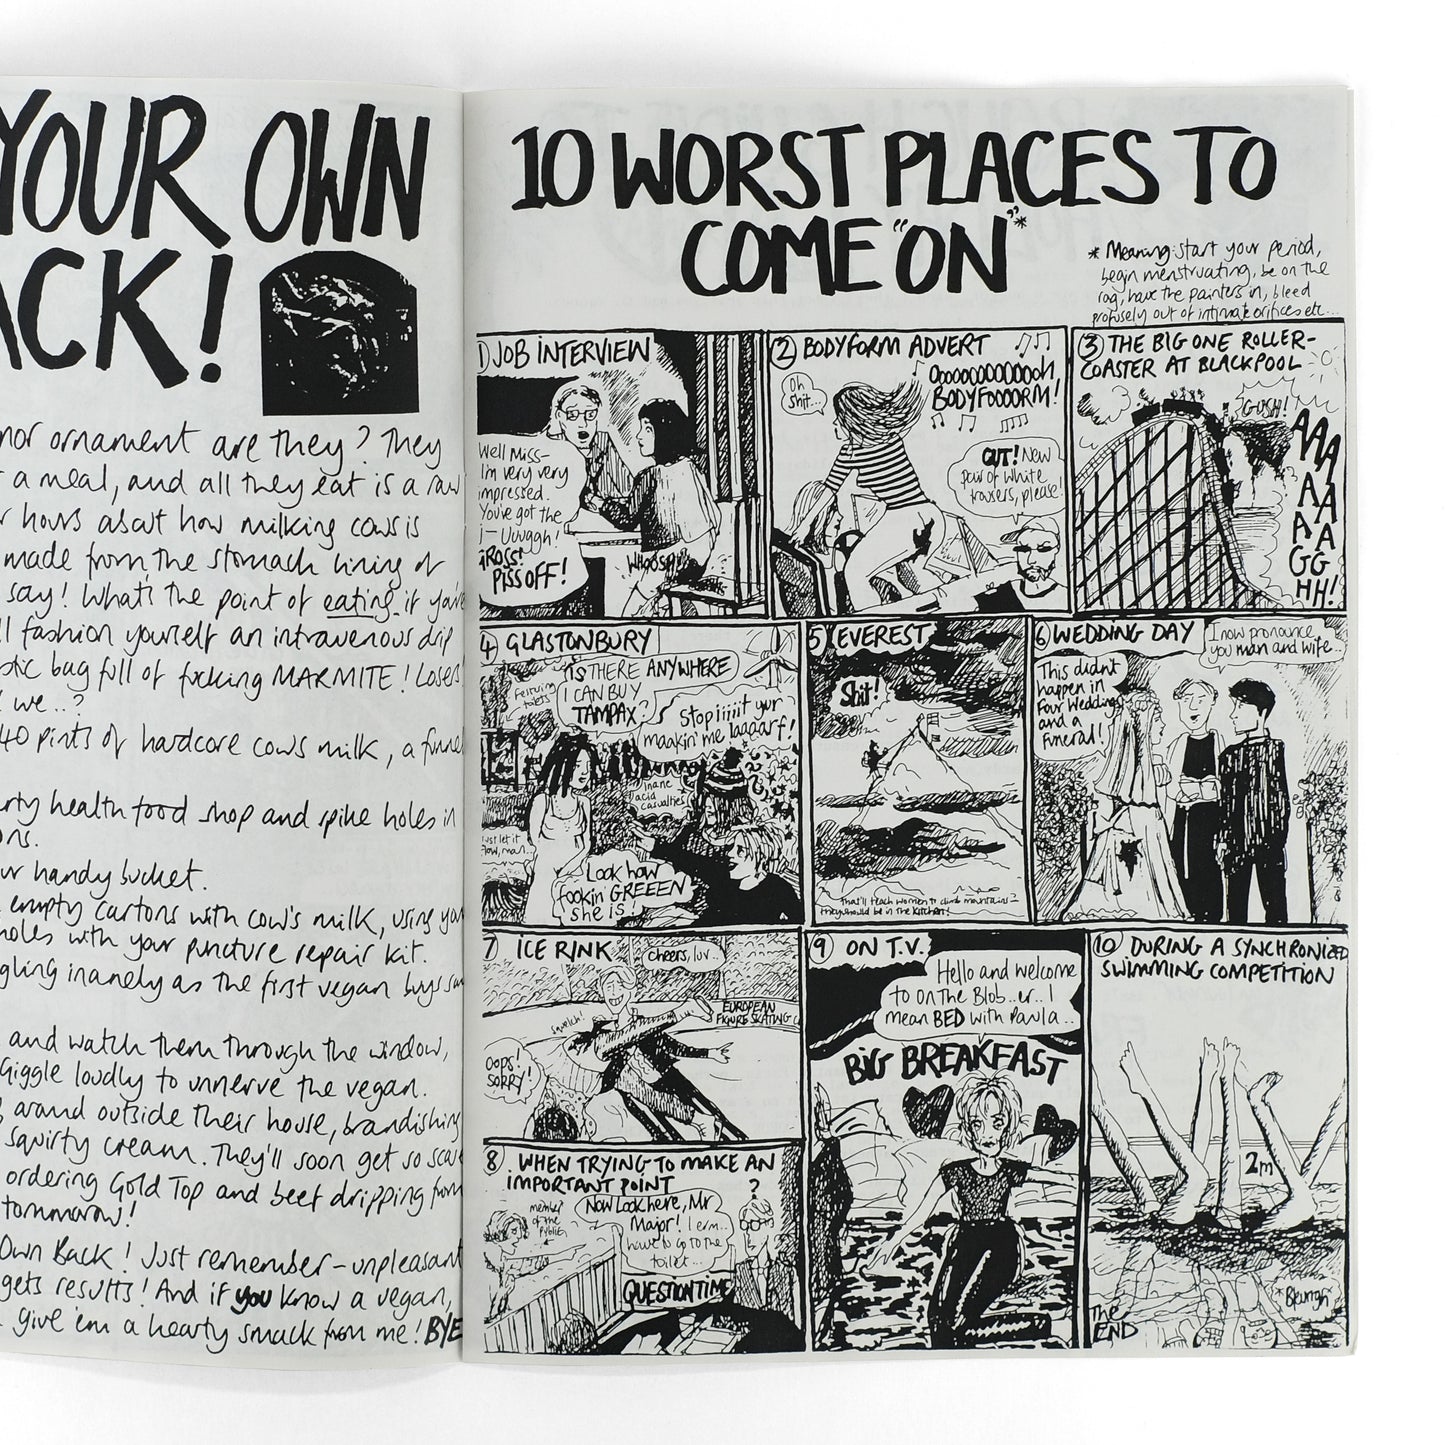 YOUR OWN
ACK!
nor ornament are they? They
a meal, and all they eat is a raw
hours about how milking cows is
made from the stomach lining of
say! What's the point of eating if you're
fashion yourself an intravenous drip
bag full of fucking MARMITE! Losers!
we..?
40 pints of hardcore cow's milk, a funnel
health food shop and spike holes in
handy bucket.
empty cartons with cow's milk, using your
holes with your puncture repair kit.
inanely as the first vegan buys
and watch them through the window,
Giggle loudly to unnerve the vegan.
around outside their house, brandishing
squirty cream. They'll soon get so
ordering Gold Top and beef dripping from
tomorrow!
Own Back! Just remember - unpleasant
gets results! And if you know a vegan,
give 'em a hearty smack from me! BYE
10 WORST PLACES TO
COME "ON"*
* Meaning: start your period,
begin menstruating, be on the
rag, have the painters in, bleed
profusely out of intimate orifices etc...
1) JOB INTERVIEW
Well Miss-
I'm very very
impressed.
You've got the
j— Uuugh!
GROSS!
PISS OFF!
WHOOSH!
2) BODYFORM ADVERT
Oh
shit...
Ooooooooooooooh
BODYFOOOORM!
CUT! New
pair of white
trousers, please!
3) THE BIG ONE ROLLER-
COASTER AT BLACKPOOL
GUSH!
AAAAAAAAGGHH!
4) GLASTONBURY
IS THERE ANYWHERE
I CAN BUY
TAMPAX?
Stop iiiiit yur
maakin' me laaaarf!
inane
acid
casualties
just let it
flow, man...
Look how
fookin GREEEN
she is!
5) EVEREST
Shit!
That'll teach women to climb mountains
they should be in the kitchen!
6) WEDDING DAY
I now pronounce
you man and wife...
This didn't
happen in
Four Weddings
and a
Funeral!
7) ICE RINK
cheers, luv...
EUROPEAN
FIGURE SKATING
squelch!
OOPS!
SORRY!
8) WHEN TRYING TO MAKE AN
IMPORTANT POINT
?
member
of the
public
Now Look here, Mr
Major! I erm..
have to go to the
toilet...
QUESTION TIME
9) ON T.V.
Hello and welcome
to on the Blob..er.. I
mean BED with Paula...
BIG BREAKFAST
10) DURING A SYNCHRONIZED
SWIMMING COMPETITION
2m
*Bleurgh*
THE
END